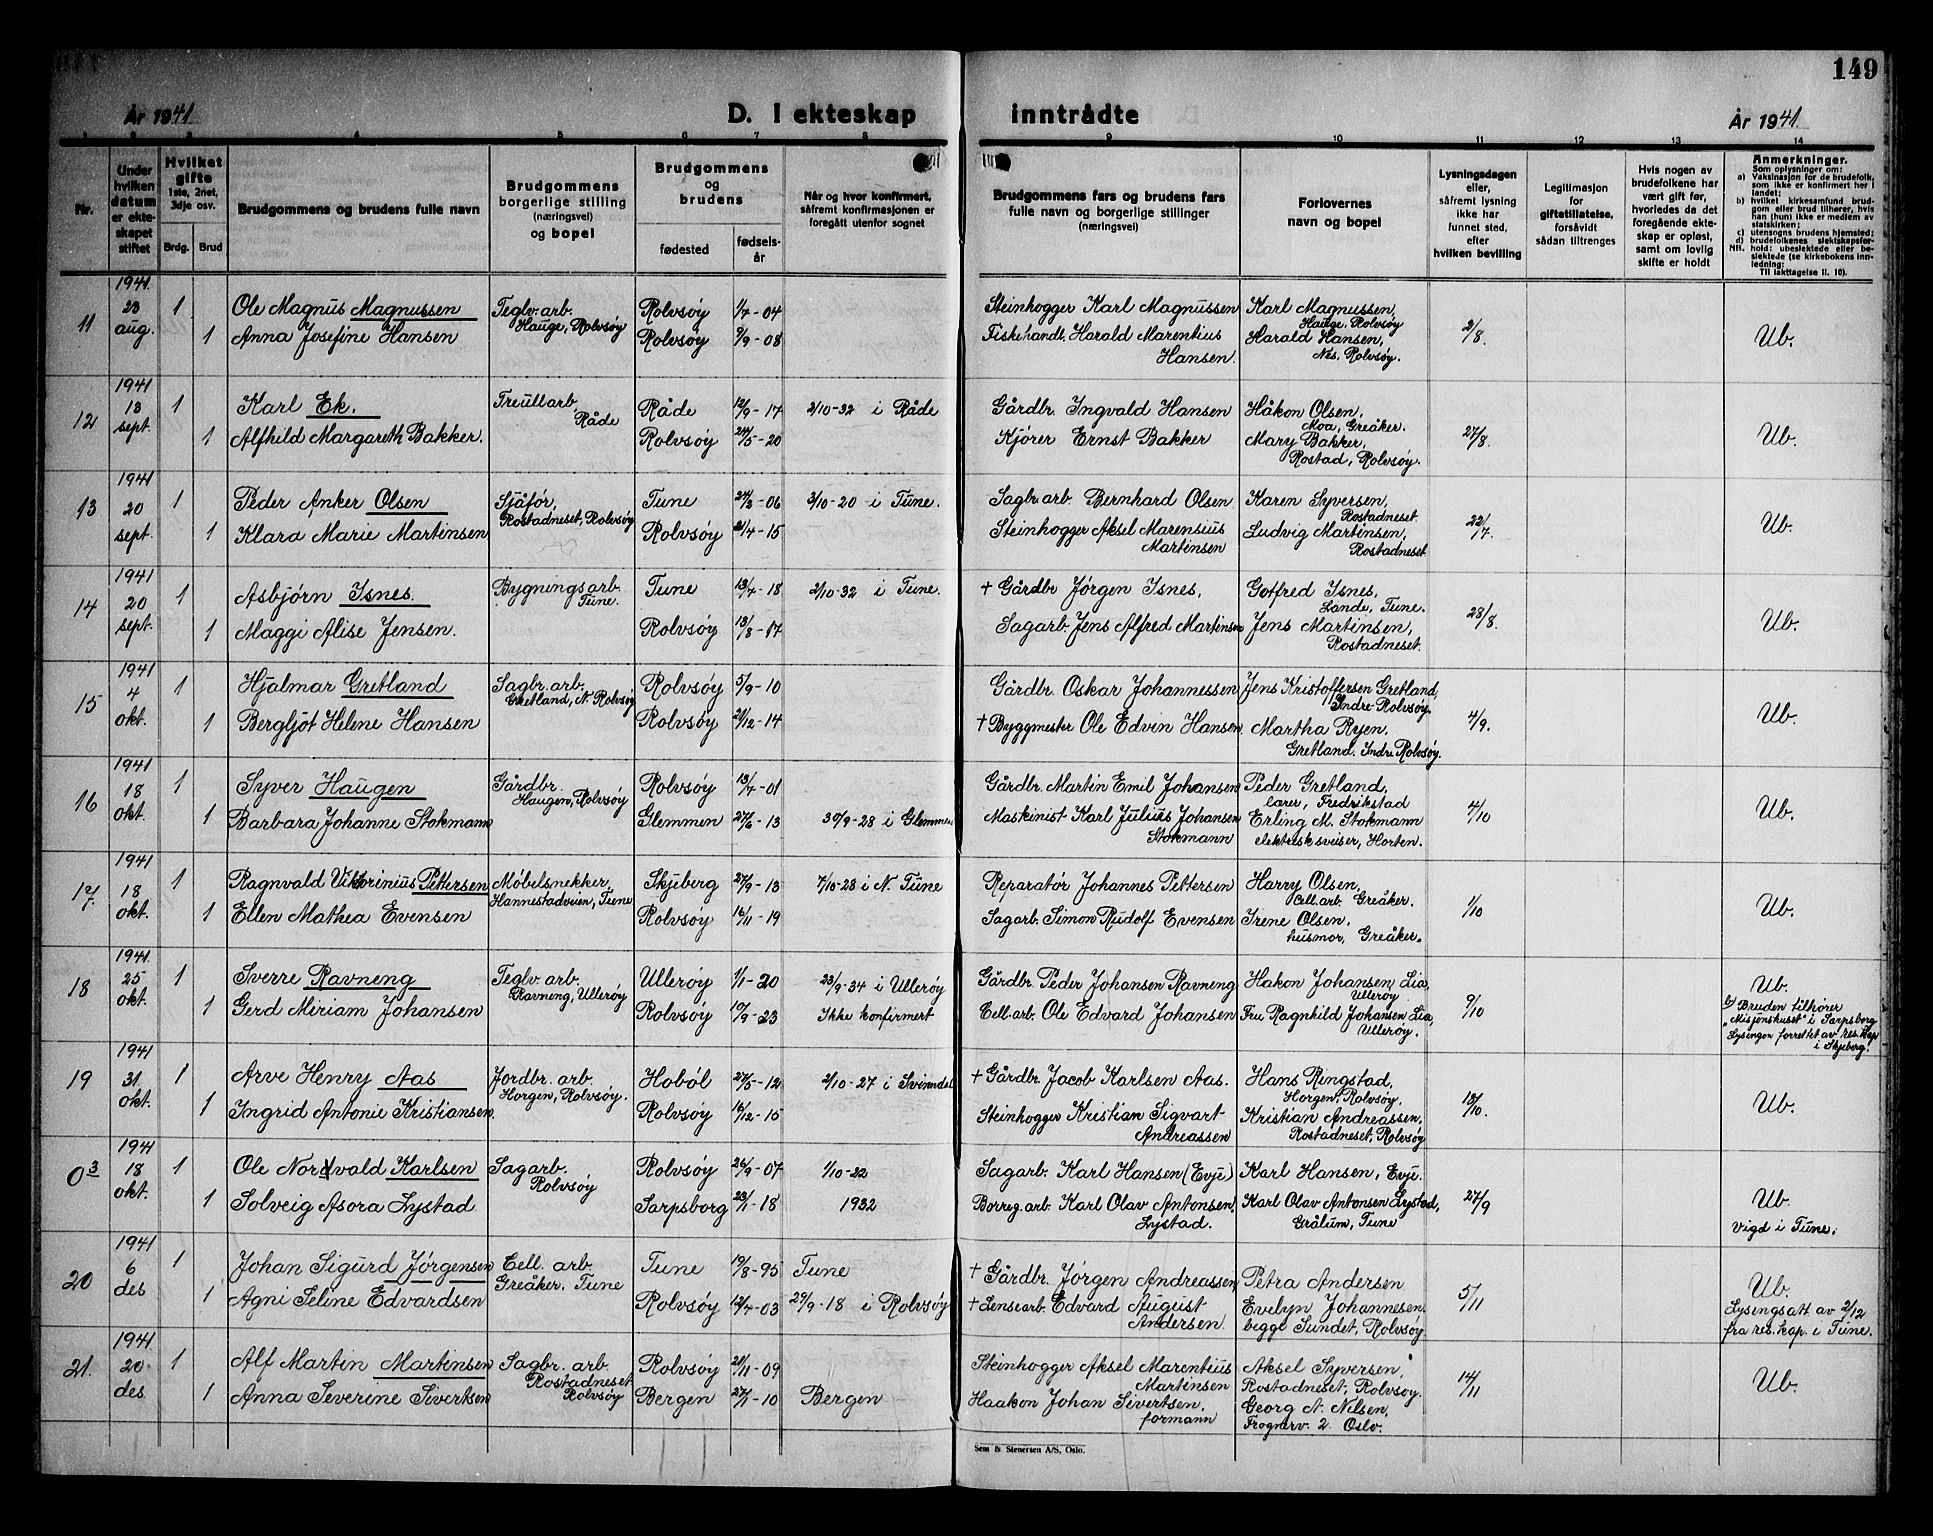 149
År 1941
D. I ekteskap inntrådte
År 1941
1 2 3 4 5 6 7 8 9 10 11 12 13 14
Nr.
Under hvilken datum er ekteskapet stiftet
Hvilket gifte 1ste, 2net, 3dje osv.
Brdg. Brud
Brudgommens og brudens fulle navn
Brudgommens borgerlige stilling (næringsvei) og bopel
Brudgommens og brudens
fødested
fødselsår
Når og hvor konfirmert, såfremt konfirmasjonen er foregått utenfor sognet
Brudgommens fars og brudens fars fulle navn og borgerlige stillinger (næringsvei)
Forlovernes navn og bopel
Lysningsdagen eller, såfremt lysning ikke har funnet sted, efter hvilken bevilling
Legitimasjon for giftetillatelse, forsåvidt sådan tiltrenges
Hvis nogen av brudefolkene har vært gift før, hvorledes da det foregående ekteskap er opløst, samt om lovlig skifte er holdt
Anmerkninger.
Som oplysninger om:
a) Vaksinasjon for de brudefolk, som ikke er konfirmert her i landet;
b) hvilket kirkesamfund brudgom eller brud tilhører, hvis han (hun) ikke er medlem av statskirken;
c) utensogns brudens hjemsted;
d) brudefolkenes slektskapsforhold: ubeslektede eller beslektede (se kirkebokens innledning; Til iakttagelse II. 10).
NB.
11 1941 23 aug. 1 Ole Magnus Magnussen Teglv. arb. Hauge, Rolvsøy Rolvsøy 1/4-04 Steinhogger Karl Magnussen Karl Magnussen, Hauge, Rolvsøy 2/8. Ub.
1 Anna Josefine Hansen Rolvsøy 9/9-08 Fiskehandl. Harald Marentius Hansen. Harald Hansen, Nes, Rolvsøy.
12 1941 13 sept. 1 Karl Ek. Treullarb Råde Råde 12/9-17 2/10-32 i Råde Gårdbr. Ingvald Hansen Håkon Olsen, Moa, Greåker. 27/8. Ub.
1 Alfhild Margareth Bakker. Rolvsøy 24/5-20 Kjører Ernst Bakker Mary Bakker, Rostad, Rolvsøy.
13 1941 20 sept. 1 Peder Anker Olsen Sjåfør, Rostadneset, Rolvsøy Tune 24/3-06 3/10-20 i Tune. Sagbr. arb. Bernhard Olsen Karen Syversen, Rostadneset. 22/7. Ub.
1 Klara Marie Martinsen Rolvsøy 21/4-15 Steinhogger Aksel Marensius Martinsen Ludvig Martinsen, Rostadneset
14 1941 20 sept. 1 Asbjørn Isnes. Bygningsarb. Tune. Tune 13/4-18 2/10-32 i Tune. + Gårdbr Jørgen Isnes, Gotfred Isnes, Lande, Tune. 28/8. Ub.
1 Maggi Alise Jensen. Rolvsøy 13/8-17 Sagarb. Jens Alfred Martinsen Jens Martinsen, Rostadneset.
15 1941 4 okt. 1 Hjalmar Gretland Sagbr. arb. Gretland, N. Rolvsøy Rolvsøy 5/9-10 Gårdbr. Oskar Johannessen Jens Kristoffersen Gretland, Indre Rolvsøy. 4/9. Ub.
1 Bergljot Helene Hansen Rolvsøy 21/12-14 + Byggmester Ole Edvin Hansen. Martha Ryen. Gretland. Indre Rolvsøy.
16 1941 18 okt. 1 Syver Haugen Gårdbr. Haugen, Rolvsøy Rolvsøy 13/4-01 Gårdbr. Martin Emil Johansen Peder Gretland, lærer, Fredrikstad 4/10 Ub.
1 Barbara Johanne Stokmann Glemmen 27/6-13 30/9-28 i Glemmen Maskinist Karl Julius Johansen Stokmann Erling M. Stokmann elektrisk sveiser, Horten.
17. 1941 18 okt. 1 Ragnvald Viktorinius Pettersen Møbelsnekker, Hannestadveien, Tune Skjeberg 27/9-13 7/10-28 i N. Tune Reparatør Johannes Pettersen Harry Olsen, Cell. arb. Greåker. 1/10 Ub.
1 Ellen Mathea Evensen Rolvsøy 16/11-19 Sagarb. Simon Rudolf Evensen Irene Olsen. husmor, Greåker.
18 1941. 25 okt. 1 Sverre Ravneng Teglv. arb. Ravneng, Ullerøy Ullerøy 1/1-20 23/9-34 i Ullerøy Gårdbr. Peder Johansen Ravneng Håkon Johansen, Lia, Ullerøy 9/10 Ub.
1 Gerd Miriam Johansen Rolvsøy 10/9-23 Ikke konfirmert Cell. arb. Ole Edvard Johansen Fru Ragnhild Johansen Lia, Ullerøy. b) Bruden tilhører "Misjonshuset" i Sarpsborg Lysingen forrettet av res. kap i Skjeberg.
19 1941 31. okt. 1 Arve Henry Aas Jordbr. arb. Horgen, Rolvsøy. Hobøl 27/5-12 2/10-27 i Svinndal + Gårdbr. Jacob Karlsen Aas. Hans Ringstad, Horgen, Rolvsøy, 13/10. Ub.
1 Ingrid Antonie Kristiansen. Rolvsøy 16/12-15 Steinhogger Kristian Sigvart Andreassen Kristian Andreassen, Rostadneset, Rolvsøy
03 1941 18 okt. 1 Ole Nordvald Karlsen Sagarb. Rolvsøy Rolvsøy 26/9-07 1/10-22 Sagarb. Karl Hansen (Evje) Karl Hansen, Evje. 27/9 Ub.
1 Solveig Asora Lystad. Sarpsborg 23/1-18 1932 Borreg. arb. Karl Olav Antonsen, Lystad. Karl Olav Antonsen Lystad, Grålum, Tune Vigd i Tune.
20 1941 6 des 1 Johan Sigurd Jørgensen Cell. arb. Greåker. Tune Tune 19/8-95 Tune + Gårdbr. Jørgen Andreassen, Petra Andersen 5/11 Ub.
1 Agni Seline Edvardsen Rolvsøy 12/4-03 29/9-18 i Rolvsøy + Lensearb. Edvard August Andersen. Evelyn Johannesen. begge Sundet, Rolvsøy Lysingsatt av 2/12 fra res. kap. i Tune.
21. 1941 20 des 1 Alf Martin Martinsen Sagbr. arb. Rostadneset Rolvsøy Rolvsøy 21/11-09 Steinhogger Aksel Marentius Martinsen Aksel Syversen, Rostadneset, Rolvsøy. 14/11 Ub.
1 Anna Severine Sivertsen Bergen 27/1-10 Bergen Haakon Johan Sivertsen, formann Georg A. Nilsen, Frognerv. 2. Oslo.
Sem & Stenersen A/S, Oslo.